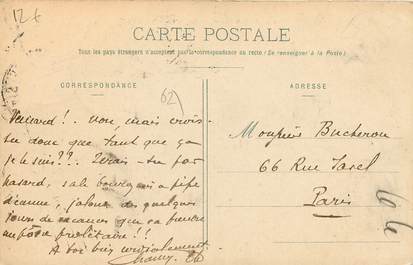 12 f
CARTE POSTALE
Tous les pays étrangers n'acceptent pas la correspondance au recto (Se renseigner à la Poste)
CORRESPONDANCE
ADRESSE
62
Veinard!.. non mais crois-
tu donc que tant que ça
je le suis??. Serais-tu par
hasard, sale bourgeois à pipe
jaloux des quelques
jours de vacances que va prendre
prolétaire!!!
A toi bien cordialement.
Monsieur Bucheron
66 Rue
Paris